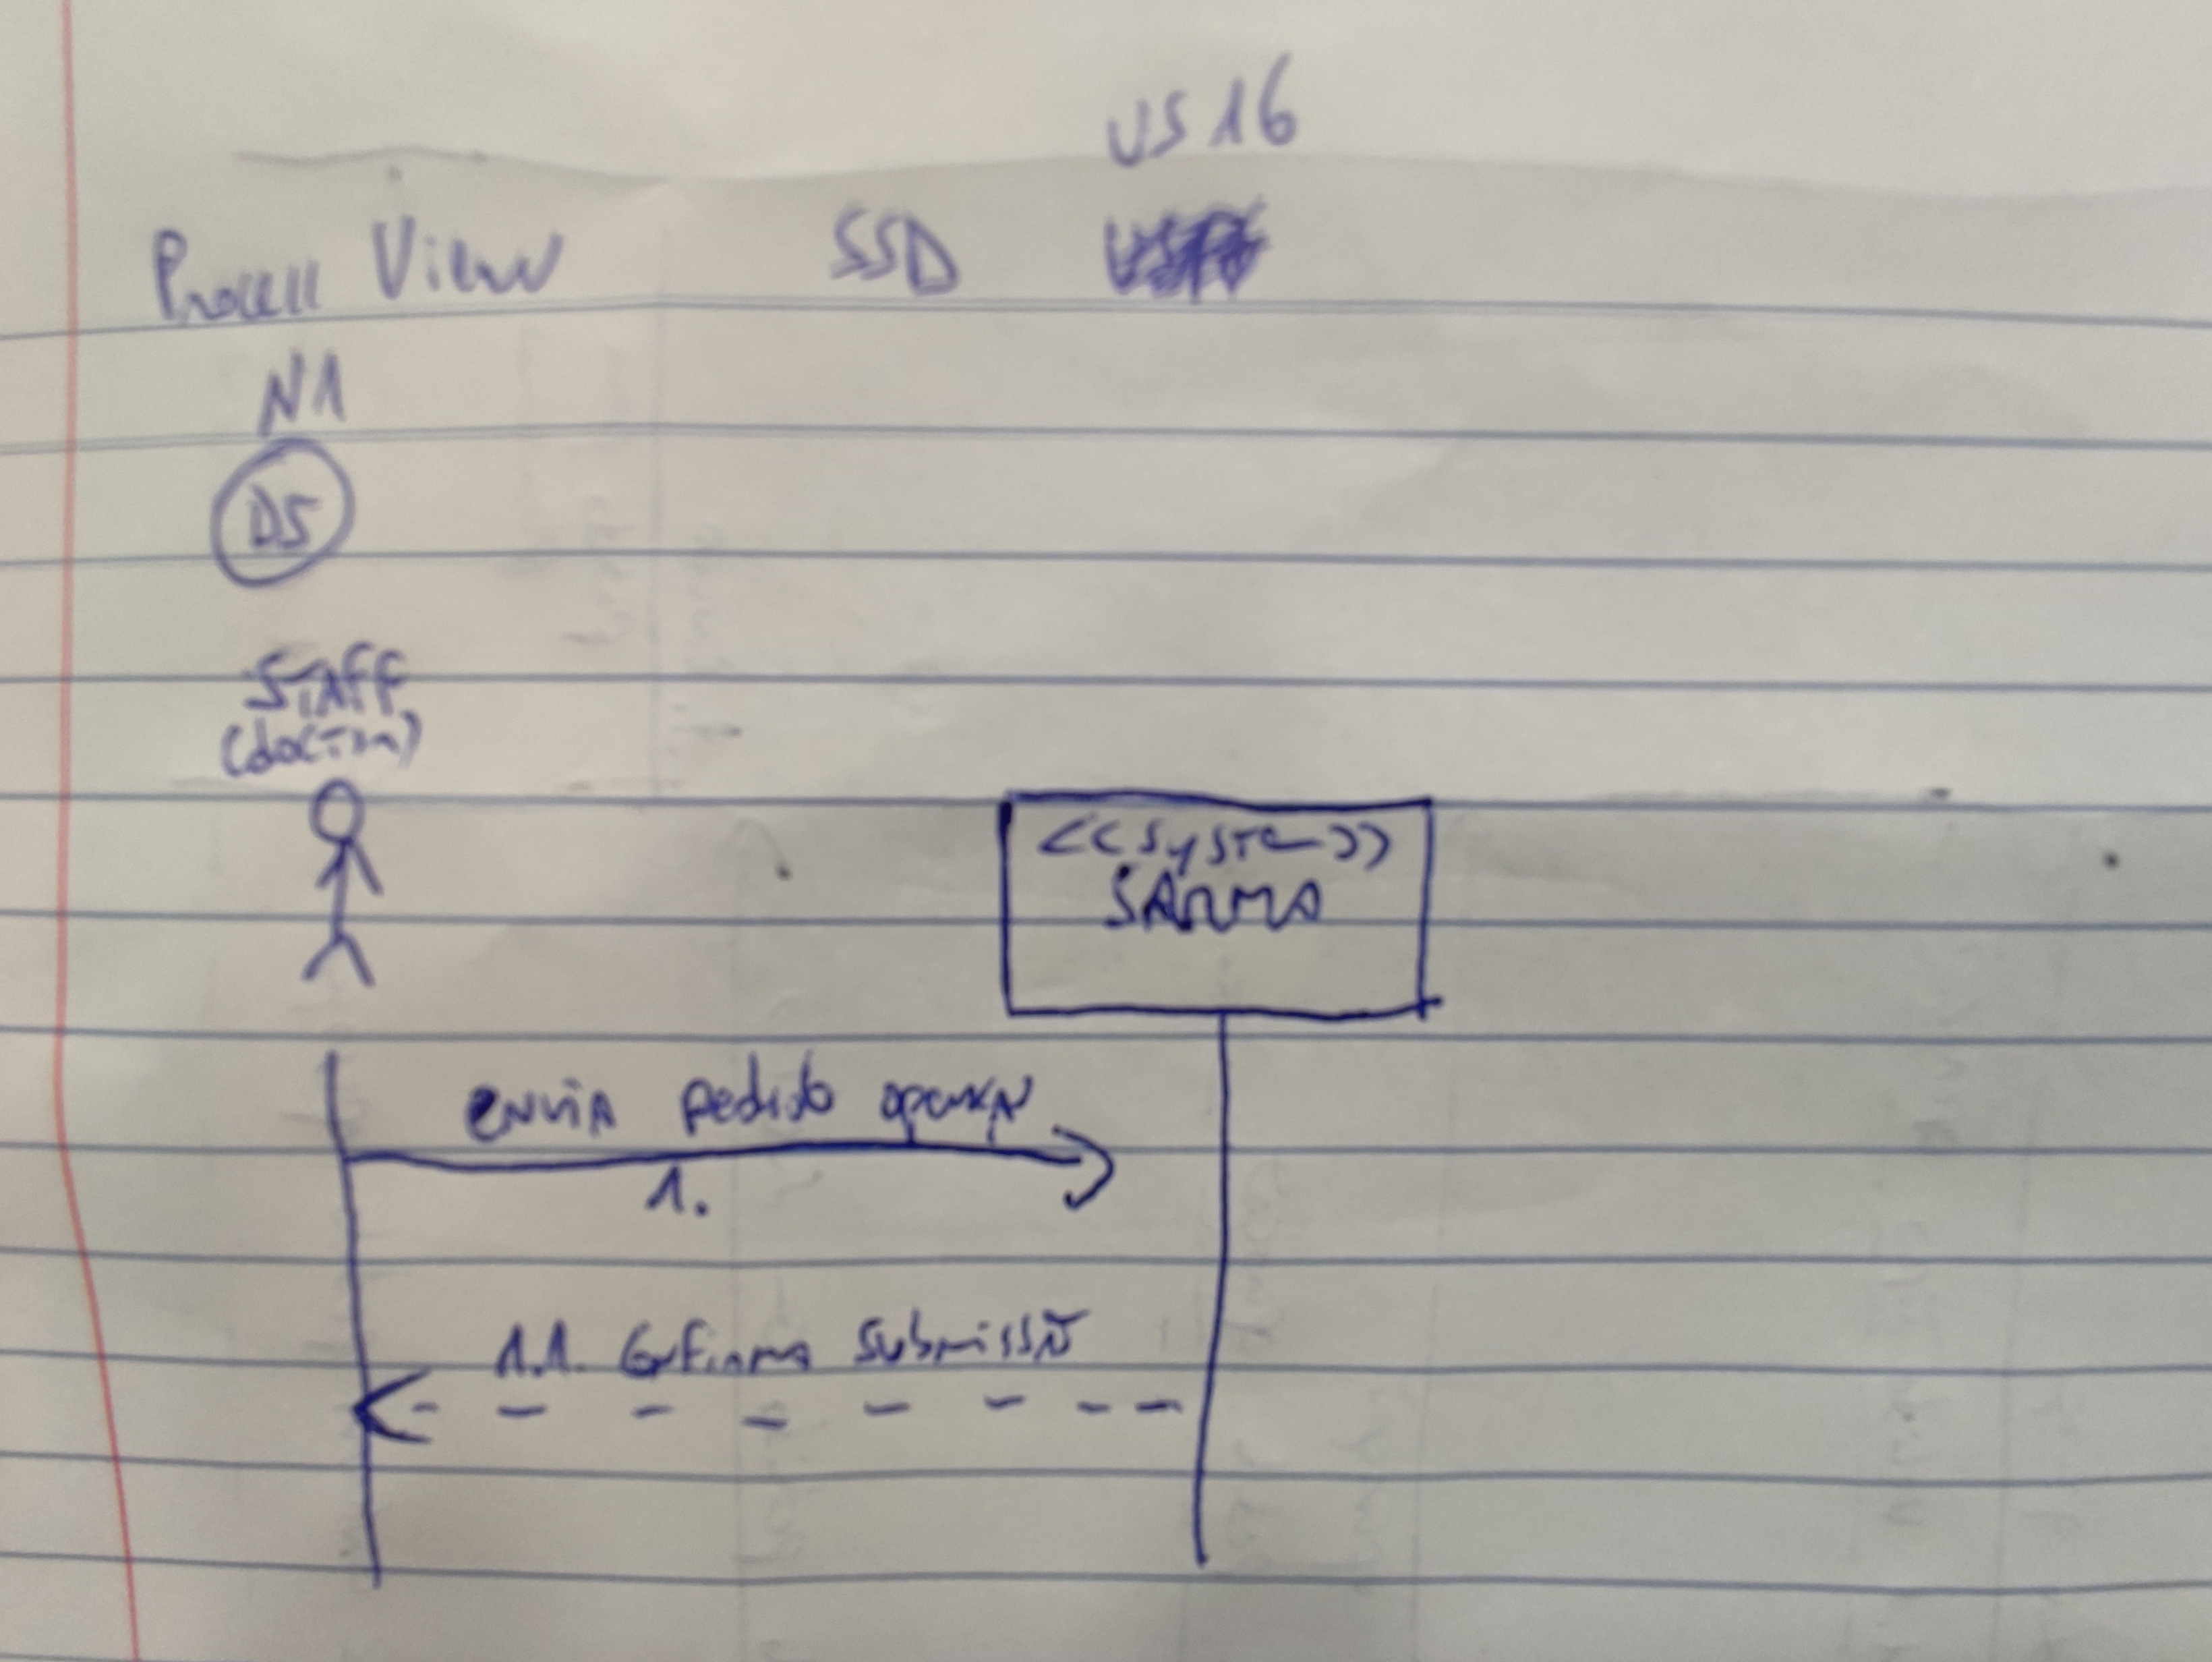 US16
Process View SSD
N1
DS
STAFF
(doctor)
<<System>>
SARMA
envia pedido operaçã
1.
1.1. Confirma submissão